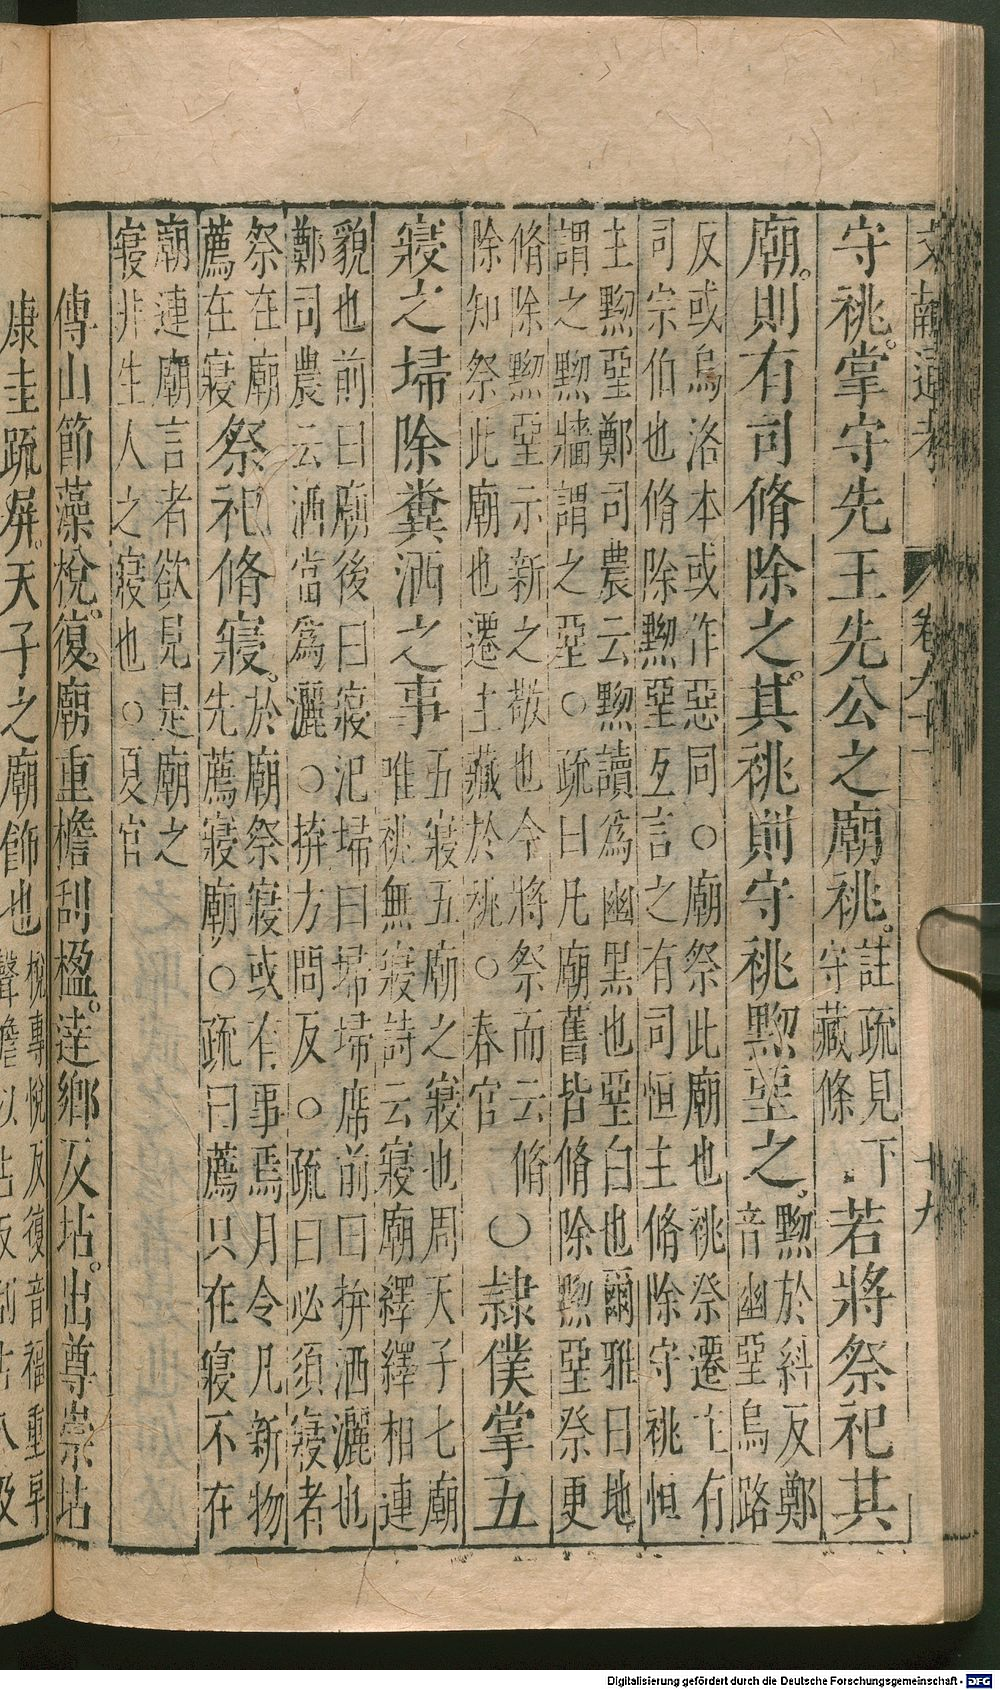 文獻通考 卷九十一 十九
守祧。掌守先王先公之廟祧。
註疏見下
守藏條
若將祭祀其
廟。則有司脩除之。其祧則守祧黝堊之。
黝於糾反鄭
音幽堊烏路
反或烏洛本或作惡同○廟祭此廟也祧祭遷主有
司宗伯也脩除黝堊互言之有司恒主脩除守祧恒
主黝堊鄭司農云黝讀爲幽黑也堊白也爾雅曰地
謂之黝牆謂之堊○疏曰凡廟舊皆脩除黝堊祭更
脩除黝堊示新之敬也今將祭而云脩
除知祭此廟也遷主藏於祧○春官
○隸僕掌五
寢之埽除糞洒之事
五寢五廟之寢也周天子七廟
唯祧無寢詩云寢廟繹繹相連
貌也前曰廟後曰寢汜埽曰埽埽席前曰拚洒灑也
鄭司農云洒當爲灑○拚方問反○疏曰必須寢者
祭在廟
薦在寢
祭祀脩寢。
於廟祭寢或有事焉月令凡新物
先薦寢廟○疏曰薦只在寢不在
廟連廟言者欲見是廟之
寢非生人之寢也○夏官
傳山節藻梲。復廟重檐刮楹。達鄉反坫。出尊崇坫
康圭疏屏。天子之廟飾也
梲專悅反復音福重
聲檐以占反刮古八反
Digitalisierung gefördert durch die Deutsche Forschungsgemeinschaft - DFG